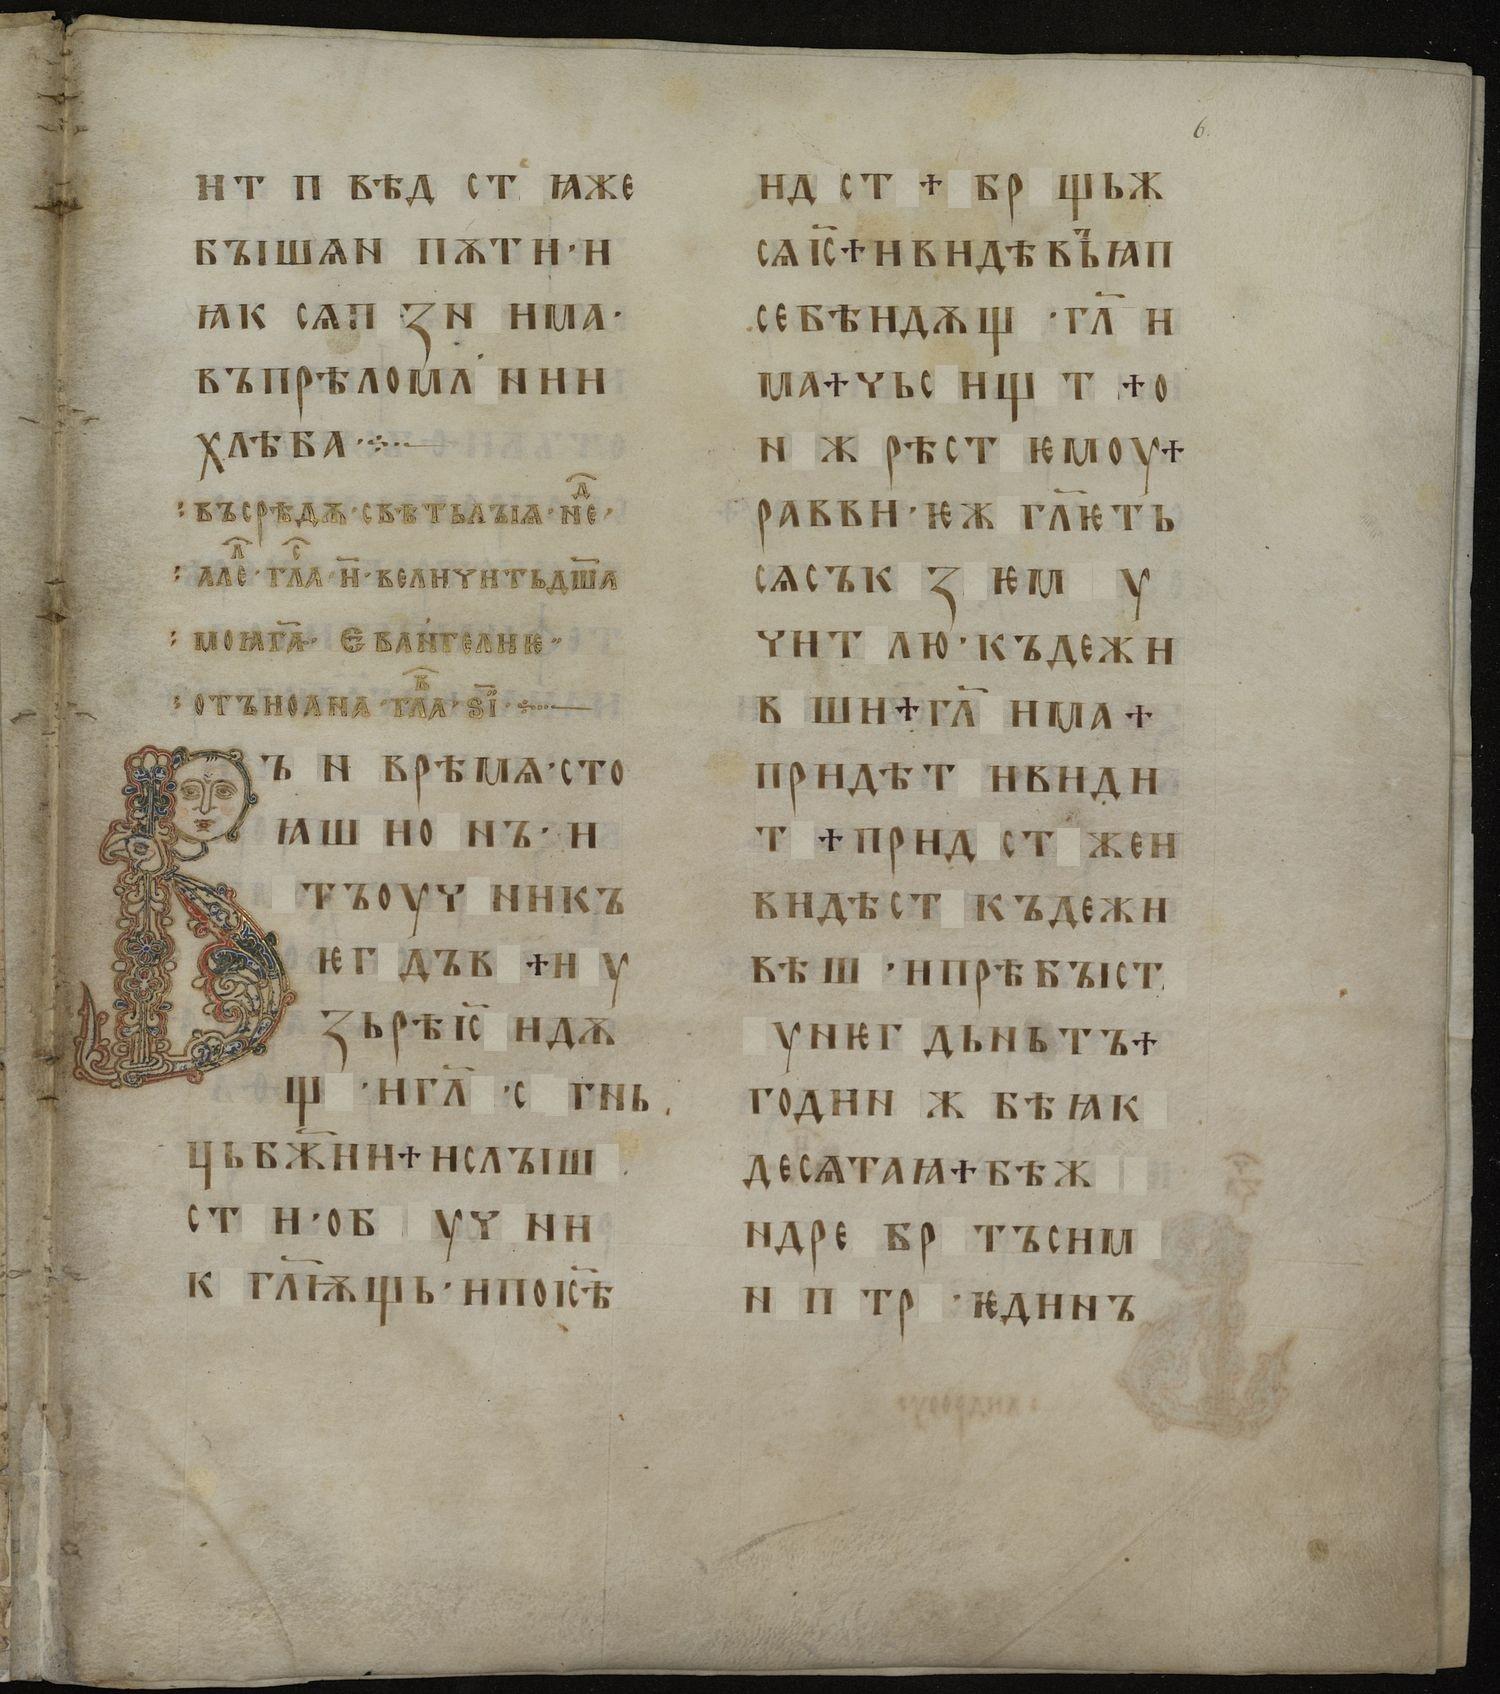 ит п вѣд ст ꙗже
бъішѧн пѫти·и
ꙗк сѧп ꙁн има·
въпрѣломл нии
хлѣба·
въсрѣдѫ·свѣтьлъіѩ·неⷣ·
алеⷧ·глаⷭ·и҃·величитьдш҃а
моꙗг҃а· еваńгелиѥ
отъиоана·глаⷡ·ѕ҃і·
Въ н врѣмѧ·сто
ꙗш ио нъ·и
тъоуч никъ
ѥг дъв +и у
ꙁьрѣіс҃ идѫ
щ ·игл҃ ·с гнь
цьбж҃ии+ислъіш
ст и·об уч ни
к гл҃ѭщь·ипоіс҃ѣ
6.
ид ст + бр щьж
сѧіс҃+ивидѣвъꙗп
себѣидѫщ ·гл҃ и
ма+чьс ищ т +о
н ж рѣст ѥмоу+
равви·ѥж гл҃ѥть
сѧсък ꙁ ѥм у
чит лю·къдежи
в ши+гл҃ има+
придѣт ивиди
т +прид ст жеи
видѣст къдежи
вѣш ·ипрѣбъіст
уиѥг дьньтъ+
годин ж бѣꙗк
десѧтаꙗ+бѣж
ндре бр тъсим
н п тр ·ѥдинъ